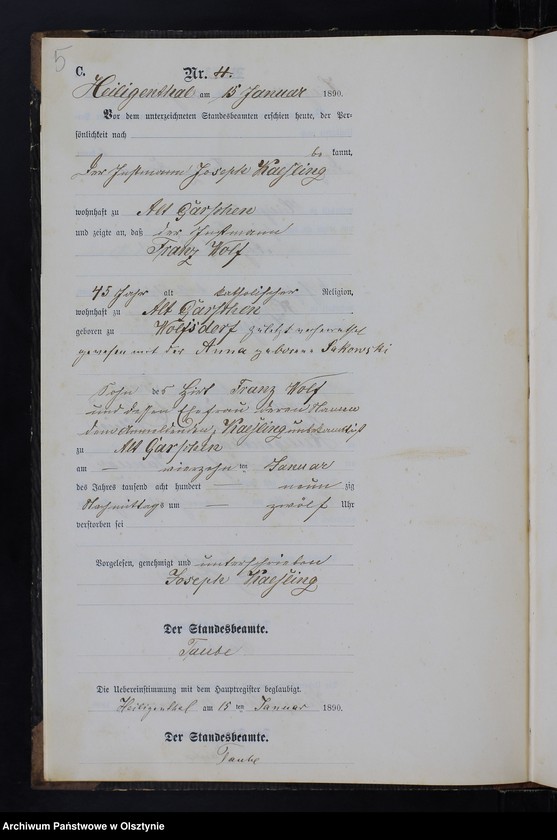 5
C. Nr. 4.
Heiligenthal am 15 Januar 1890.
Vor dem unterzeichneten Standesbeamten erschien heute, der Per-
sönlichkeit nach
be kannt,
der Instmann Joseph Kaeßling
wohnhaft zu Alt Garschen
und zeigte an, daß der Instmann
Franz Wolf
45 Jahr alt katholischer Religion,
wohnhaft zu Alt Garschen
geboren zu Wolfsdorf zuletzt verheirathet
gewesen mit der Anna geborene Sakowski
Sohn des Hirt Franz Wolf
und dessen Ehefrau deren Namen
dem Anmeldenden Kaeßling unbekannt ist
zu Alt Garschen
am vierzehn ten Januar
des Jahres tausend acht hundert neun zig
Nachmittags um zwölf Uhr
verstorben sei
Vorgelesen, genehmigt und unterschrieben
Joseph Kaeßling
Der Standesbeamte.
Taube
Die Uebereinstimmung mit dem Hauptregister beglaubigt.
Heiligenthal am 15 ten Januar 1890.
Der Standesbeamte.
Taube
Archiwum Państwowe w Olsztynie